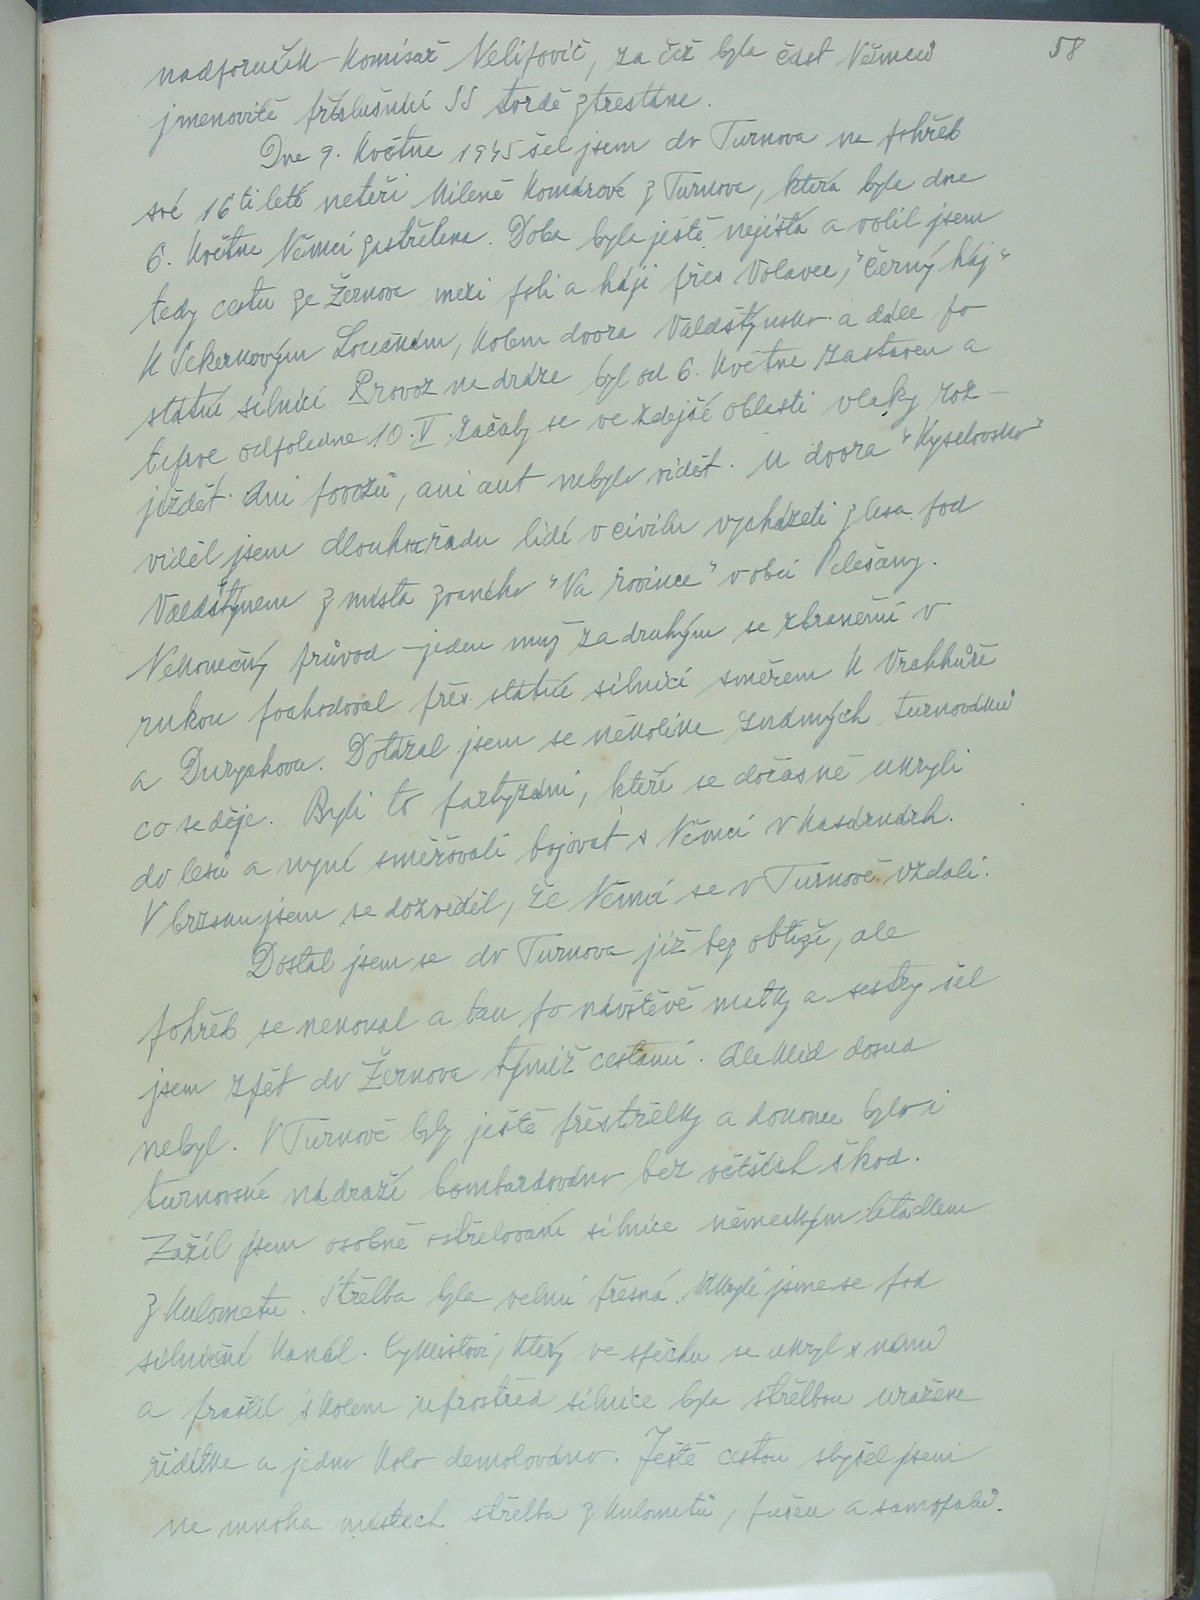 58
nadporučík-komisař Nelipovič, za čež byla část Němců
jmenovitě příslušníci SS tvrdě ztrestána.
Dne 9. května 1945 šel jsem do Turnova na pohřeb
své 16ti leté neteři Mileně Komárové z Turnova, která byla dne
6. května Němci zastřelena. Doba byla ještě nejistá a volil jsem
tedy cestu ze Žernova mezi poli a háji přes Volavec, "Černý háj"
k Sekerkovým Loučkám, kolem dvora Valdštýnsko a dále po
státní silnici. Provoz na dráze byl od 6. května zastaven a
teprve odpoledne 10. V. začaly se ve zdejší oblasti vlaky roz-
jíždět. Ani povozů, ani aut nebylo vidět. U dvora "Kyselovsko"
viděl jsem dlouhou řadu lidí v civilu vycházeti z lesa pod
Valdštýnem z místa zvaného "Na rovince" v obci Pelešany.
Nekonečný průvod - jeden muž za druhým se zbraněmi v
rukou pochodoval přes státní silnici směrem k Vrchhůře
a Durychovu. Dotázal jsem se několika známých turnováků
co se děje. Byli to partyzáni, kteří se dočasně ukryli
do lesů a nyní směřovali bojovat s Němci v kasárnách.
V brzsku jsem se dozvěděl, že Němci se v Turnově vzdali.
Dostal jsem se do Turnova již bez obtíží, ale
pohřeb se nekonal a tak po návštěvě matky a sestry šel
jsem zpět do Žernova týmiž cestami. Ale klid dosud
nebyl. V Turnově byly ještě přestřelky a dokonce bylo i
turnovské nádraží bombardováno bez větších škod.
Zažil jsem osobně ostřelování silnice německým letadlem
z kulometu. Střelba byla velmi přesná. Ukryli jsme se pod
silniční kanál. Cyklistovi, který ve spěchu se ukryl s námi
a praštil s kolem uprostřed silnice byla střelbou uražena
řidítka a jedno kolo demolováno. Ještě cestou slyšel jsem
na mnoha místech střelbu z kulometů, pušek a samopalů.